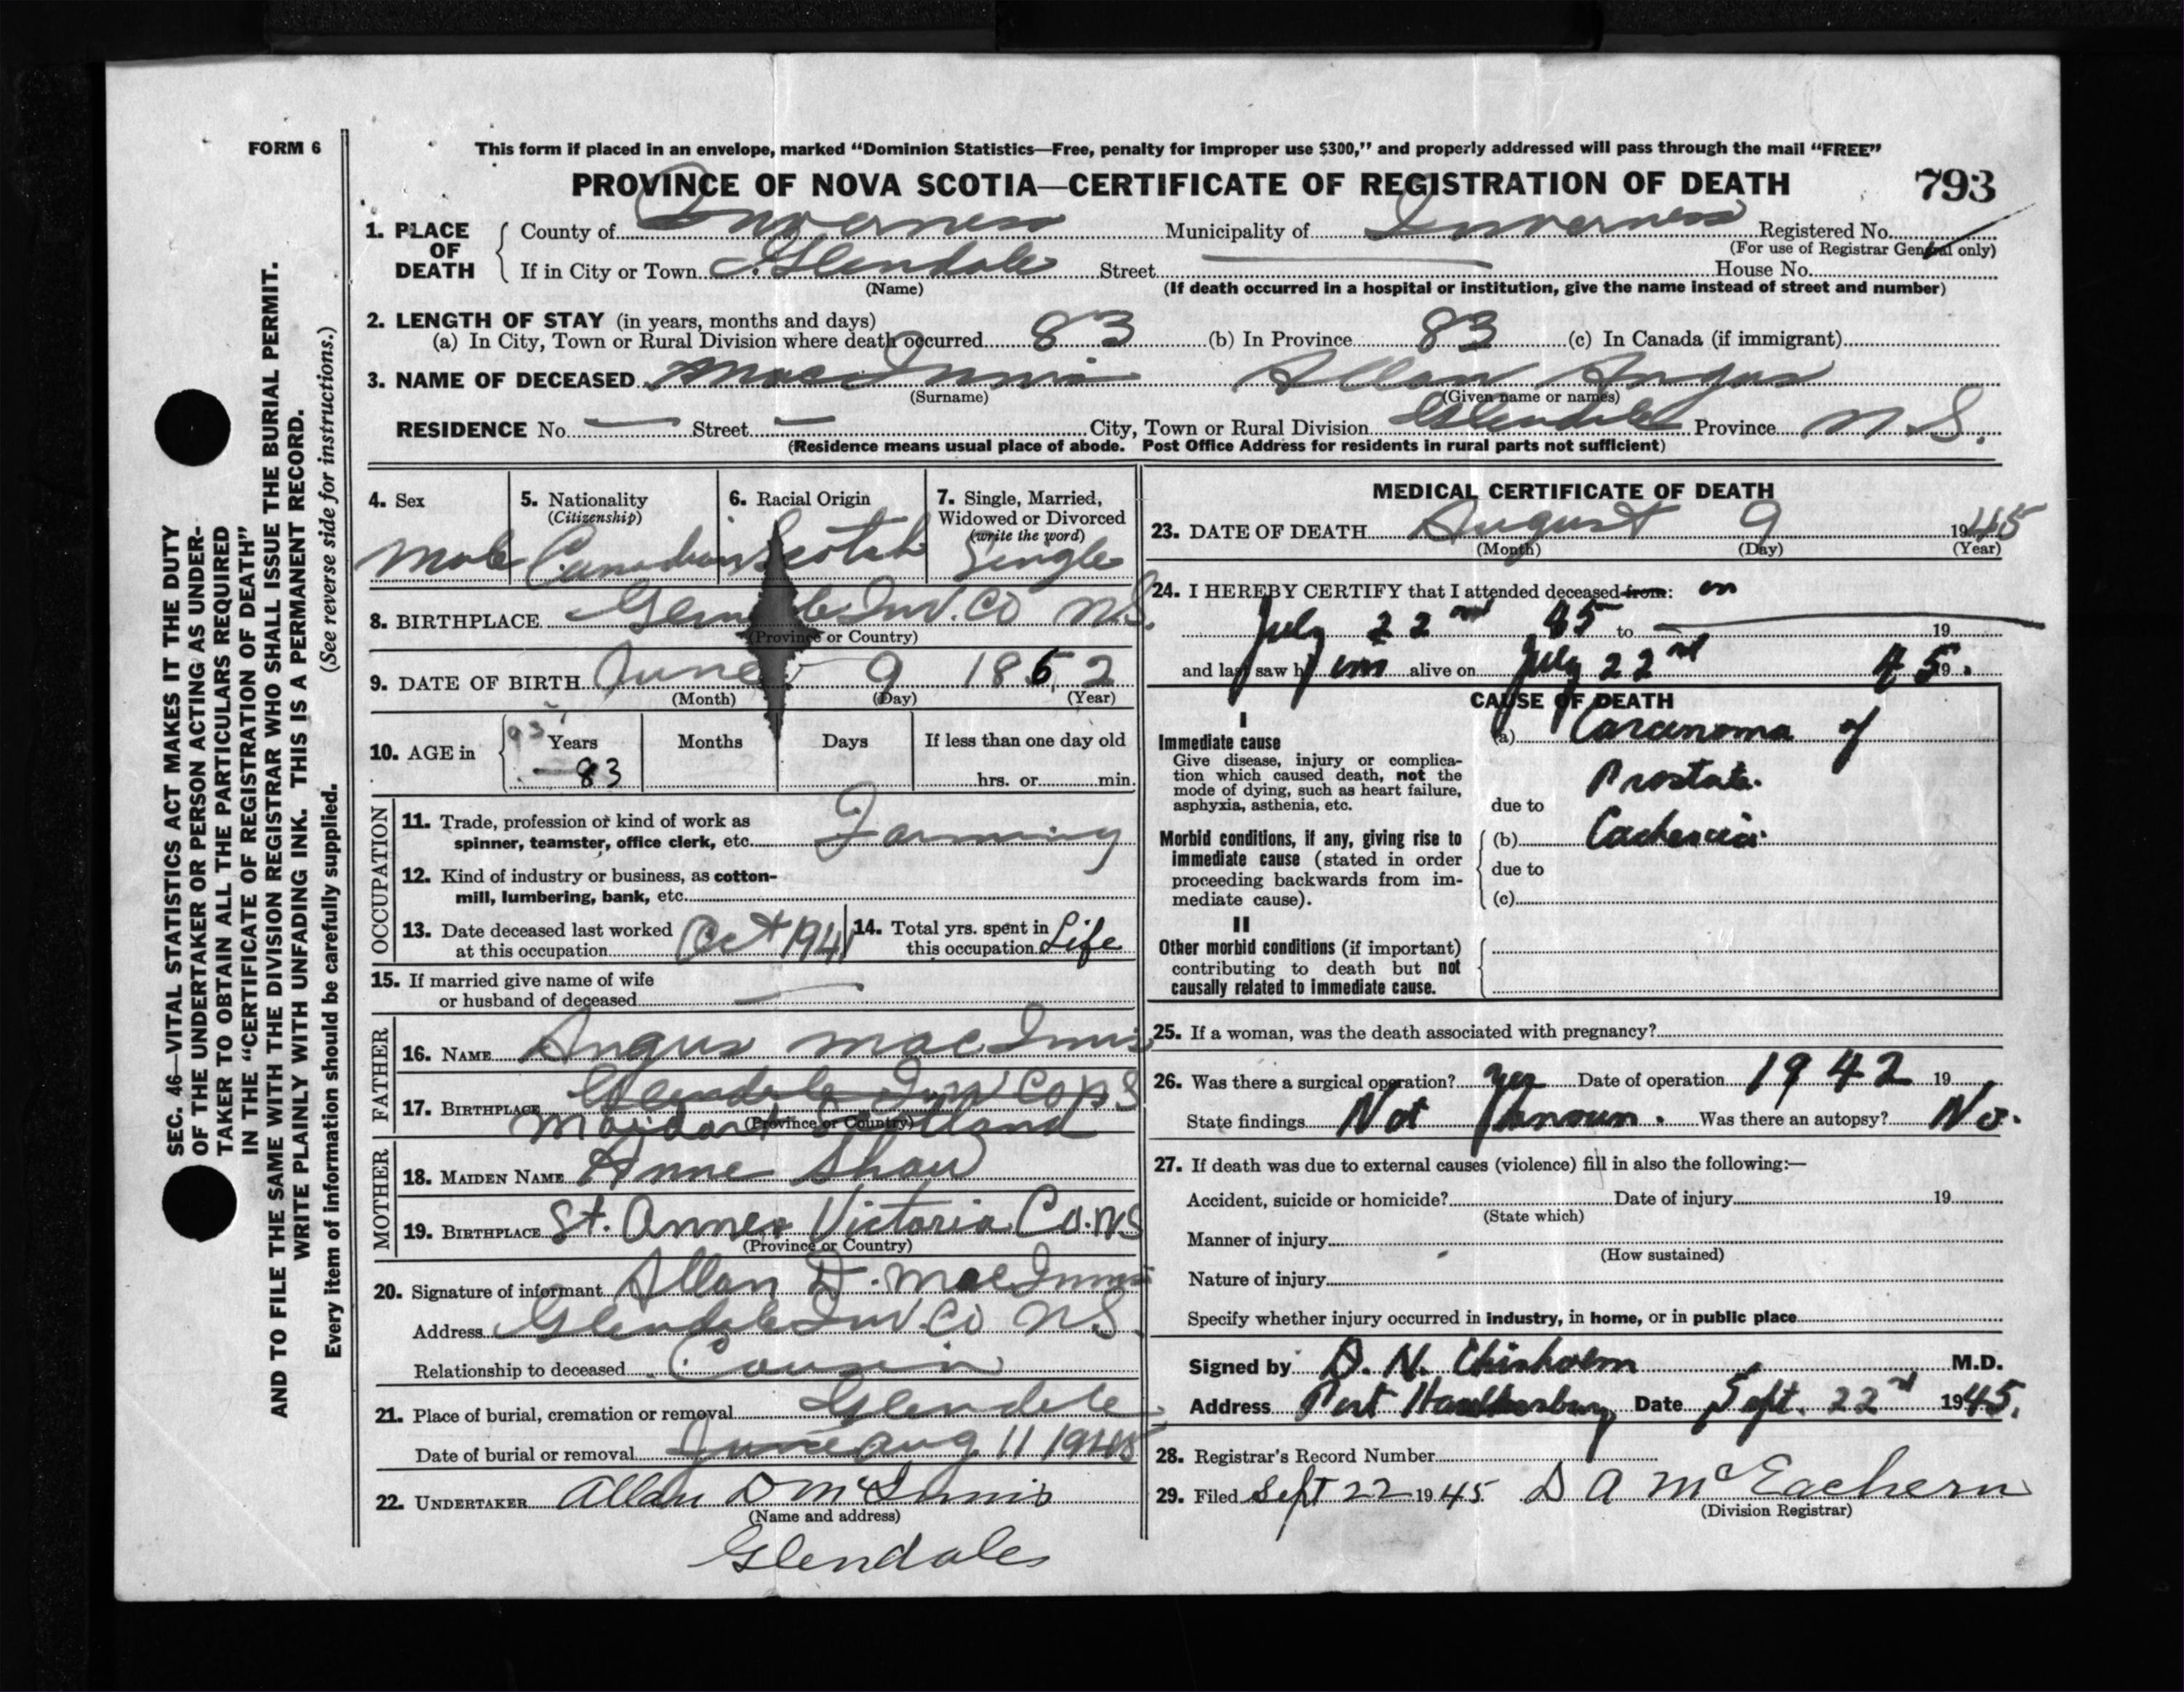 FORM 6
This form if placed in an envelope, marked “Dominion Statistics—Free, penalty for improper use $300,” and properly addressed will pass through the mail “FREE”
PROVINCE OF NOVA SCOTIA—CERTIFICATE OF REGISTRATION OF DEATH 793
1. PLACE OF DEATH County of Inverness Municipality of Inverness Registered No.
(For use of Registrar General only)
If in City or Town Glendale Street House No.
(Name) (If death occurred in a hospital or institution, give the name instead of street and number)
2. LENGTH OF STAY (in years, months and days)
(a) In City, Town or Rural Division where death occurred 83 (b) In Province 83 (c) In Canada (if immigrant)
3. NAME OF DECEASED MacInnis Allan Angus
(Surname) (Given name or names)
RESIDENCE No. — Street — City, Town or Rural Division Glendale Province N.S.
(Residence means usual place of abode. Post Office Address for residents in rural parts not sufficient)
4. Sex 5. Nationality 6. Racial Origin 7. Single, Married,
(Citizenship) Widowed or Divorced
(write the word)
Male Canadian Scotch Single
8. BIRTHPLACE Glendale Inv. Co N.S.
(Province or Country)
9. DATE OF BIRTH June 9 1862
(Month) (Day) (Year)
10. AGE in Years Months Days If less than one day old
83 hrs. or min.
OCCUPATION
11. Trade, profession or kind of work as
spinner, teamster, office clerk, etc. Farming
12. Kind of industry or business, as cotton-
mill, lumbering, bank, etc.
13. Date deceased last worked 14. Total yrs. spent in
at this occupation Oct 1941 this occupation Life
15. If married give name of wife
or husband of deceased —
FATHER
16. NAME Angus MacInnis
17. BIRTHPLACE Glendale Inv Co N S
(Province or Country)
Moidart Scotland
MOTHER
18. MAIDEN NAME Anne Shaw
19. BIRTHPLACE St. Annes Victoria Co. NS
(Province or Country)
20. Signature of informant Allan D. MacInnis
Address Glendale Inv. Co N.S.
Relationship to deceased Cousin
21. Place of burial, cremation or removal Glendale
Date of burial or removal June Aug 11 1945
22. UNDERTAKER Allan D McInnis
(Name and address)
Glendale
MEDICAL CERTIFICATE OF DEATH
23. DATE OF DEATH August 9 1945
(Month) (Day) (Year)
24. I HEREBY CERTIFY that I attended deceased from: on
July 22nd 45 to — 19
and last saw him alive on July 22nd 45 19
CAUSE OF DEATH
I
Immediate cause
Give disease, injury or complica-
tion which caused death, not the
mode of dying, such as heart failure,
asphyxia, asthenia, etc.
(a) Carcinoma of
Prostate.
due to
Morbid conditions, if any, giving rise to
immediate cause (stated in order
proceeding backwards from im-
mediate cause).
(b) Cachexia.
due to
(c)
II
Other morbid conditions (if important)
contributing to death but not
causally related to immediate cause.
25. If a woman, was the death associated with pregnancy?
26. Was there a surgical operation? Yes Date of operation 1942 19
State findings Not Known. Was there an autopsy? No.
27. If death was due to external causes (violence) fill in also the following:—
Accident, suicide or homicide? Date of injury 19
(State which)
Manner of injury
(How sustained)
Nature of injury
Specify whether injury occurred in industry, in home, or in public place
Signed by D. N. Chisholm M.D.
Address Port Hawkesbury Date Sept. 22nd 1945.
28. Registrar's Record Number
29. Filed Sept 22 1945. D A McEachern
(Division Registrar)
SEC. 46—VITAL STATISTICS ACT MAKES IT THE DUTY
OF THE UNDERTAKER OR PERSON ACTING AS UNDER-
TAKER TO OBTAIN ALL THE PARTICULARS REQUIRED
IN THE “CERTIFICATE OF REGISTRATION OF DEATH”
AND TO FILE THE SAME WITH THE DIVISION REGISTRAR WHO SHALL ISSUE THE BURIAL PERMIT.
WRITE PLAINLY WITH UNFADING INK. THIS IS A PERMANENT RECORD.
Every item of information should be carefully supplied. (See reverse side for instructions.)